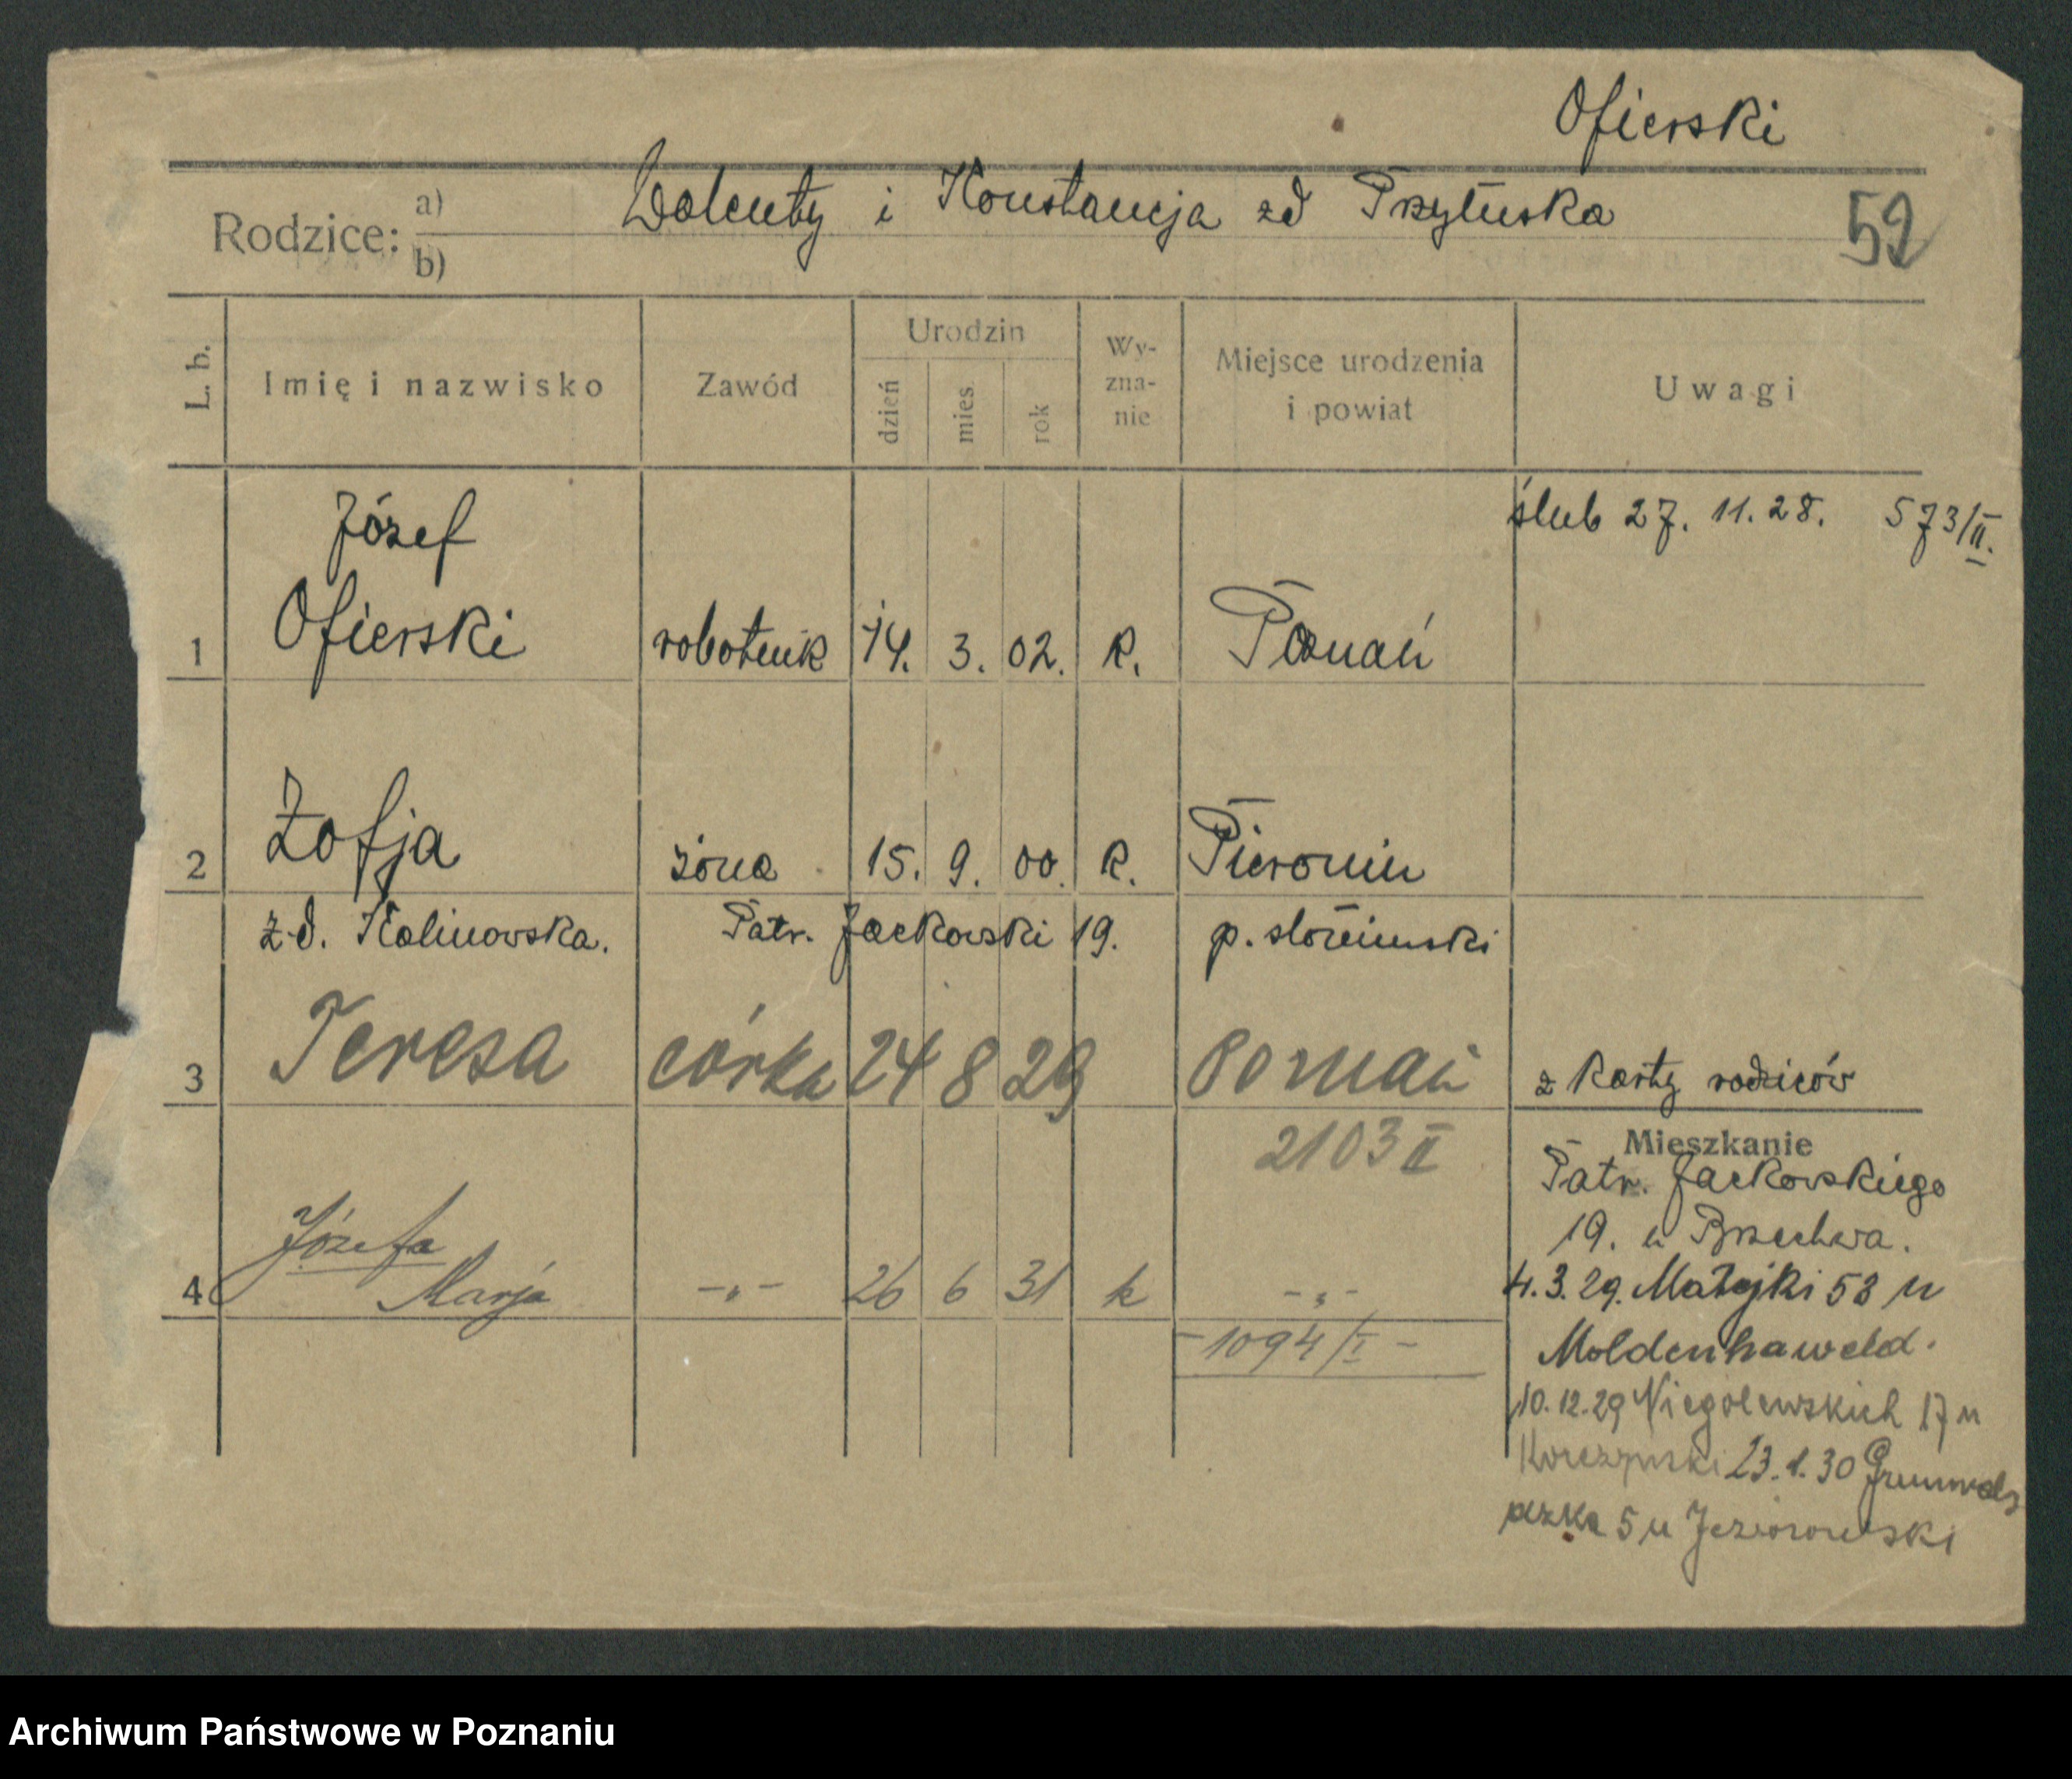 Ofierski
Rodzice: a) b) Walenty i Konstancja zd Przyłuska
52
L. b. Imię i nazwisko Zawód Urodzin dzień mies. rok Wy-zna-nie Miejsce urodzenia i powiat Uwagi
ślub 27. 11. 28. 573/II.
Józef
1 Ofierski robotnik 14. 3. 02. R. Poznań
2 Zofja żona 15. 9. 00. R. Pieronin
z d. Kalinowska. Patr. Jackowski 19. p. słonimski
3 Teresa córka 24 8 29 Poznań z karty rodziców
2103 II
Mieszkanie
Patr. Jackowskiego
19. u Brzechwa.
Józefa
4 Marja -„- 26 6 31 k -„-
4. 3. 29. Matejki 53 u
-1094/I-
10. 12. 29 Niegolewskich 17 u
23. 1. 30 Grunwalz
dzka 5 u Jeziorowski
Archiwum Państwowe w Poznaniu